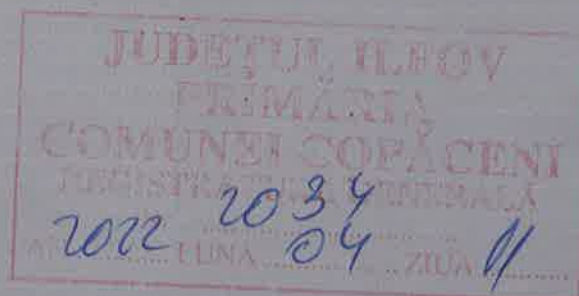 JUDEȚUL ILFOV
PRIMĂRIA
COMUNEI COPĂCENI
REGISTRATURA GENERALĂ
2034
A 2022 LUNA 04 ZIUA 11